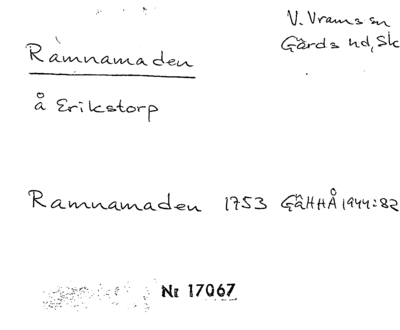 V. Vrams sn
Gärds hd, Sk
Ramnamaden
å Erikstorp
Ramnamaden 1753 GäHHÅ 1944:82
Nr 17067